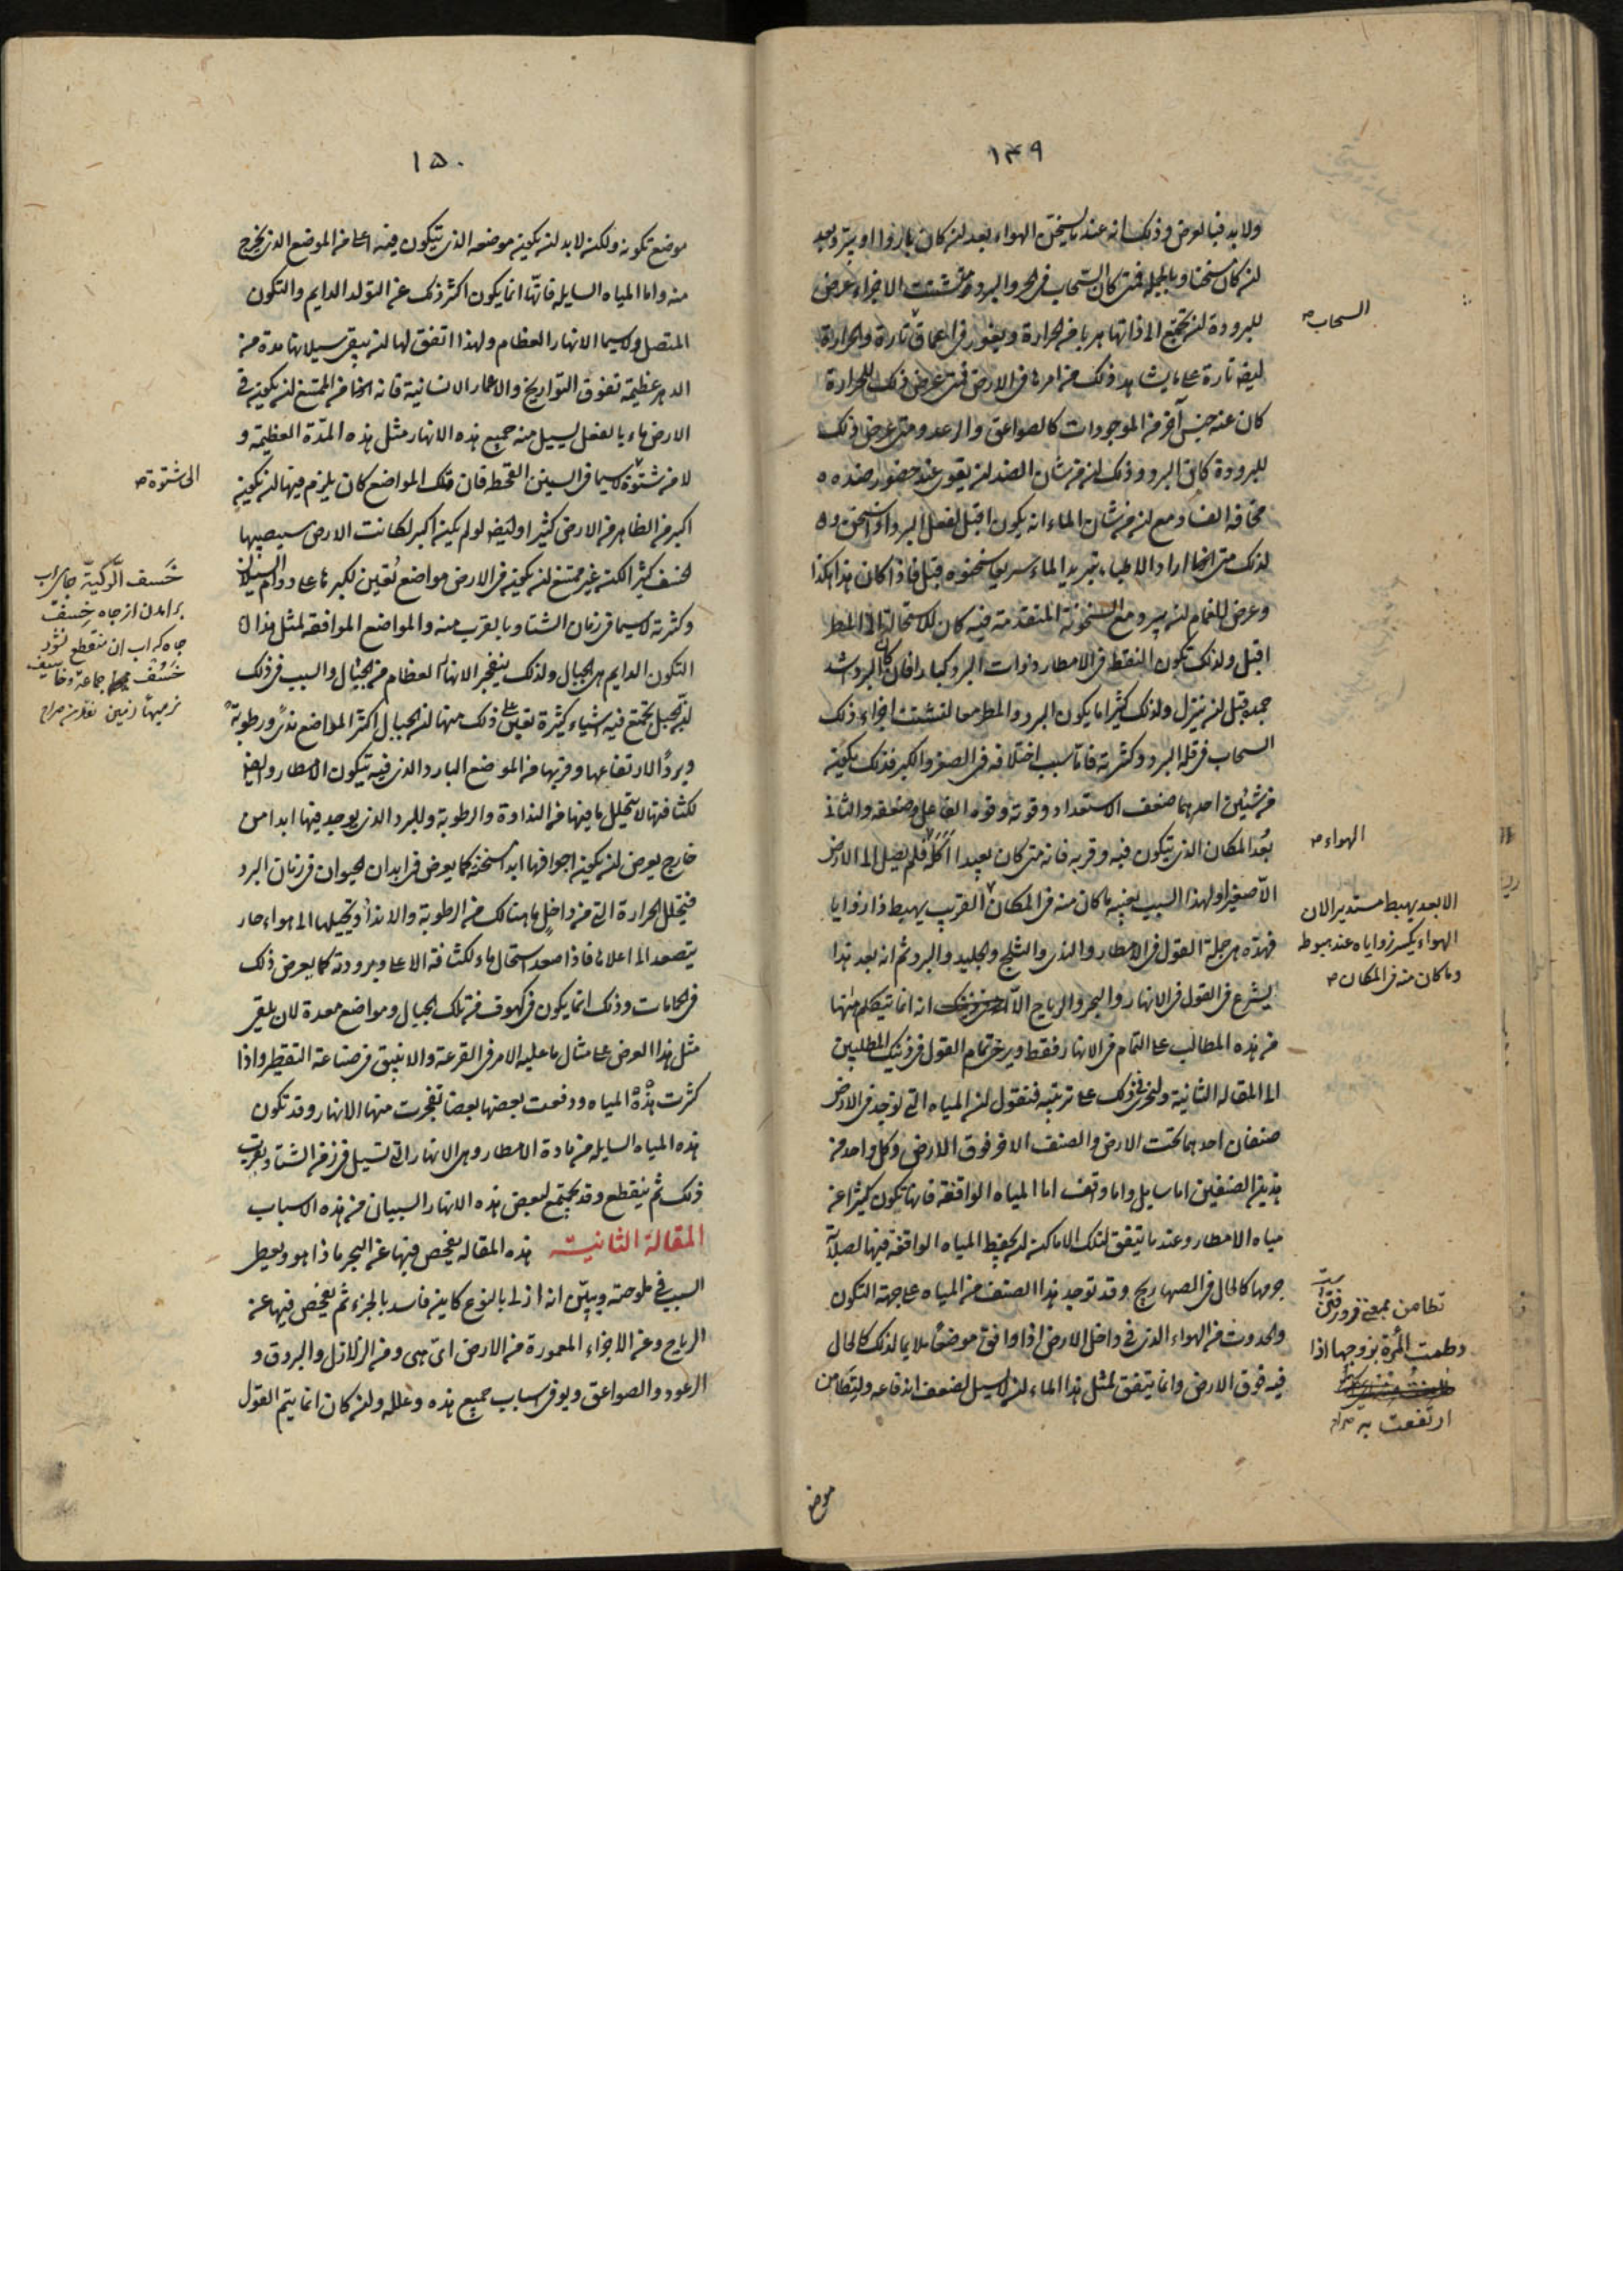 ١٤٩
ولا بد فيما يعرض وذلك انه عندما يسخن الهواء بعد ان كان باردا او يبرد بعد
ان كان سخنا وبالجملة فمتى كان السحاب في الحر والبرد متشتت الاجزاء عرض
للبرودة ان تجتمع الى ذاتها هربا من الحرارة ويغور في اعماق تارة والحرارة
ايضا تارة على ما يشاهد ذلك من امرها في الارض فمتى عرض ذلك للحرارة
كان عنه جنس آخر من الموجودات كالصواعق والرعد ومتى عرض ذلك
للبرودة كان البرد وذلك ان من شان الضد ان يقوى عند حضور ضده
مخافة الفساد مع ان من شان الماء انه يكون اقبل لفعل البرد اذا سخن
لذلك متى اراد الاطباء تبريد الماء سريعا سخنوه قبل فاذا كان هذا هكذا
وعرض للغمام ان يبرد مع السخونة المتقدمة فيه كان للاستحالة الى المطر
اقبل ولذلك تكون النقط في الامطار ذوات البرد كبارا فان كان البرد اشد
جمد قبل ان ينزل ولذلك كثيرا ما يكون البرد والمطر معا لتشتت اجزاء ذلك
السحاب في قلة البرد وكثرته فاما سبب اختلافه في الصغر والكبر فذلك يكون
من شيئين احدهما ضعف الاستعداد وقوته وقوة الفاعل وضعفه والثاني
بعد المكان الذي يتكون فيه وقربه فانه متى كان بعيدا فلم يصل الى الارض
الا صغيرا ولهذا السبب بعينه ما كان منه في المكان القريب يهبط ذا زوايا
فهذه هي جملة القول في الامطار والندى والثلج والجليد والبرد ثم انه بعد هذا
يشرع في القول في الانهار والبحر والرياح الا انه انما يتكلم منها
من هذه المطالب على التمام في الانهار فقط ويرجئ تمام القول في ذينك المطلبين
الى المقالة الثانية ولنجر في ذلك على ترتيبه فنقول ان المياه التي توجد في الارض
صنفان احدهما تحت الارض والصنف الاخر فوق الارض وكل واحد من
هذين الصنفين اما سايل واما واقف اما المياه الواقفة فانها تكون كثيرا عن
مياه الامطار وعندما يتفق لتلك الاماكن ان يحفظ المياه الواقفة فيها لصلابة
جرمها كالحال في الصهاريج وقد توجد هذا الصنف من المياه على جهة التكون
والحدوث من الهواء الذي في داخل الارض اذا وافق موضعا ملايما لذلك كالحال
فيه فوق الارض وانما يتفق لمثل هذا الماء ان لا يسيل لضعف اندفاعه وليتطامن
موضع
السحاب
الهواء
الابعد يهبط مستديرا لان
الهواء يكسر زواياه عند هبوطه
وما كان منه في المكان
تطامن بمعنى فروتنى
ارتفعت به صراح
١٥٠
موضع تكونه ولكن لا بد ان يكون موضعه الذي يتكون فيه اعلى من الموضع الذي يخرج
منه واما المياه السايلة فانها انما يكون اكثر ذلك عن التولد الدايم والتكون
المتصل ولا سيما الانهار العظام ولهذا اتفق لها ان يبقى سيلانها مدة من
الدهر عظيمة تفوق التواريخ والاعمار الانسانية فانه من الممتنع ان يكون في
الارض ماء بالفعل يسيل منه جميع هذه الانهار مثل هذه المدة العظيمة و
لا من شتوة لا سيما في السنين القحطة فان تلك المواضع كان يلزم فيها ان يكون
اكبر من الظاهر من الارض كثيرا وايضا لو لم يكن اكبر لكانت الارض سيصيبها
خسف كثير لكنه غير ممتنع ان يكون في الارض مواضع تعين لكبرها على دوام السيلان
وكثرته لا سيما في زمان الشتاء وبالقرب منه والمواضع الموافقة لمثل هذا
التكون الدايم هي الجبال ولذلك ينفجر الانهار العظام من الجبال والسبب في ذلك
ان الجبل يجتمع فيه اشياء كثيرة تعين على ذلك منها ان الجبال اكثر المواضع ندى ورطوبة
وبردا لارتفاعها وقربها من الموضع البارد الذي فيه تتكون الامطار وايضا
لكثافتها لا يتحلل ما فيها من النداوة والرطوبة وللبرد الذي يوجد فيها ابدا من
خارج يعرض ان يكون اجوافها ابدا سخنة كما يعرض في ابدان الحيوان في زمان البرد
فتحلل الحرارة التي من داخل ما هنالك من الرطوبة والانداء وتحيلها الى هواء حار
يتصعد الى اعلاها فاذا صعد استحال ماء لكثافة الاعلى وبرودته كما يعرض ذلك
في الحمامات وذلك انما يكون في كهوف من تلك الجبال ومواضع معدة لان يلقى
مثل هذا العرض على مثال ما عليه الامر في القرعة والانبيق في صناعة التقطير واذا
كثرت هذه المياه ودفعت بعضها بعضا تفجرت منها الانهار وقد تكون
هذه المياه السايلة من مادة الامطار وهي الانهار التي تسيل في زمن الشتاء وبقرب
ذلك ثم ينقطع وقد يجتمع لبعض هذه الانهار السببان من هذه الاسباب
المقالة الثانية هذه المقالة يفحص فيها عن البحر ما ذا هو ويعطى
السبب في ملوحته ويبين انه ازلى بالنوع كاين فاسد بالجزء ثم يفحص فيها عن
الرياح وعن الاجزاء المعمورة من الارض اى هى ومن الزلازل والبروق و
الرعود والصواعق ويوفى اسباب جميع هذه وعلله وان كان انما يتم القول
الى شتوة
خسف الركية جاى اب
برامدن از چاه خسيف
چاه كه اب ان منقطع نشود
خسف جماعة